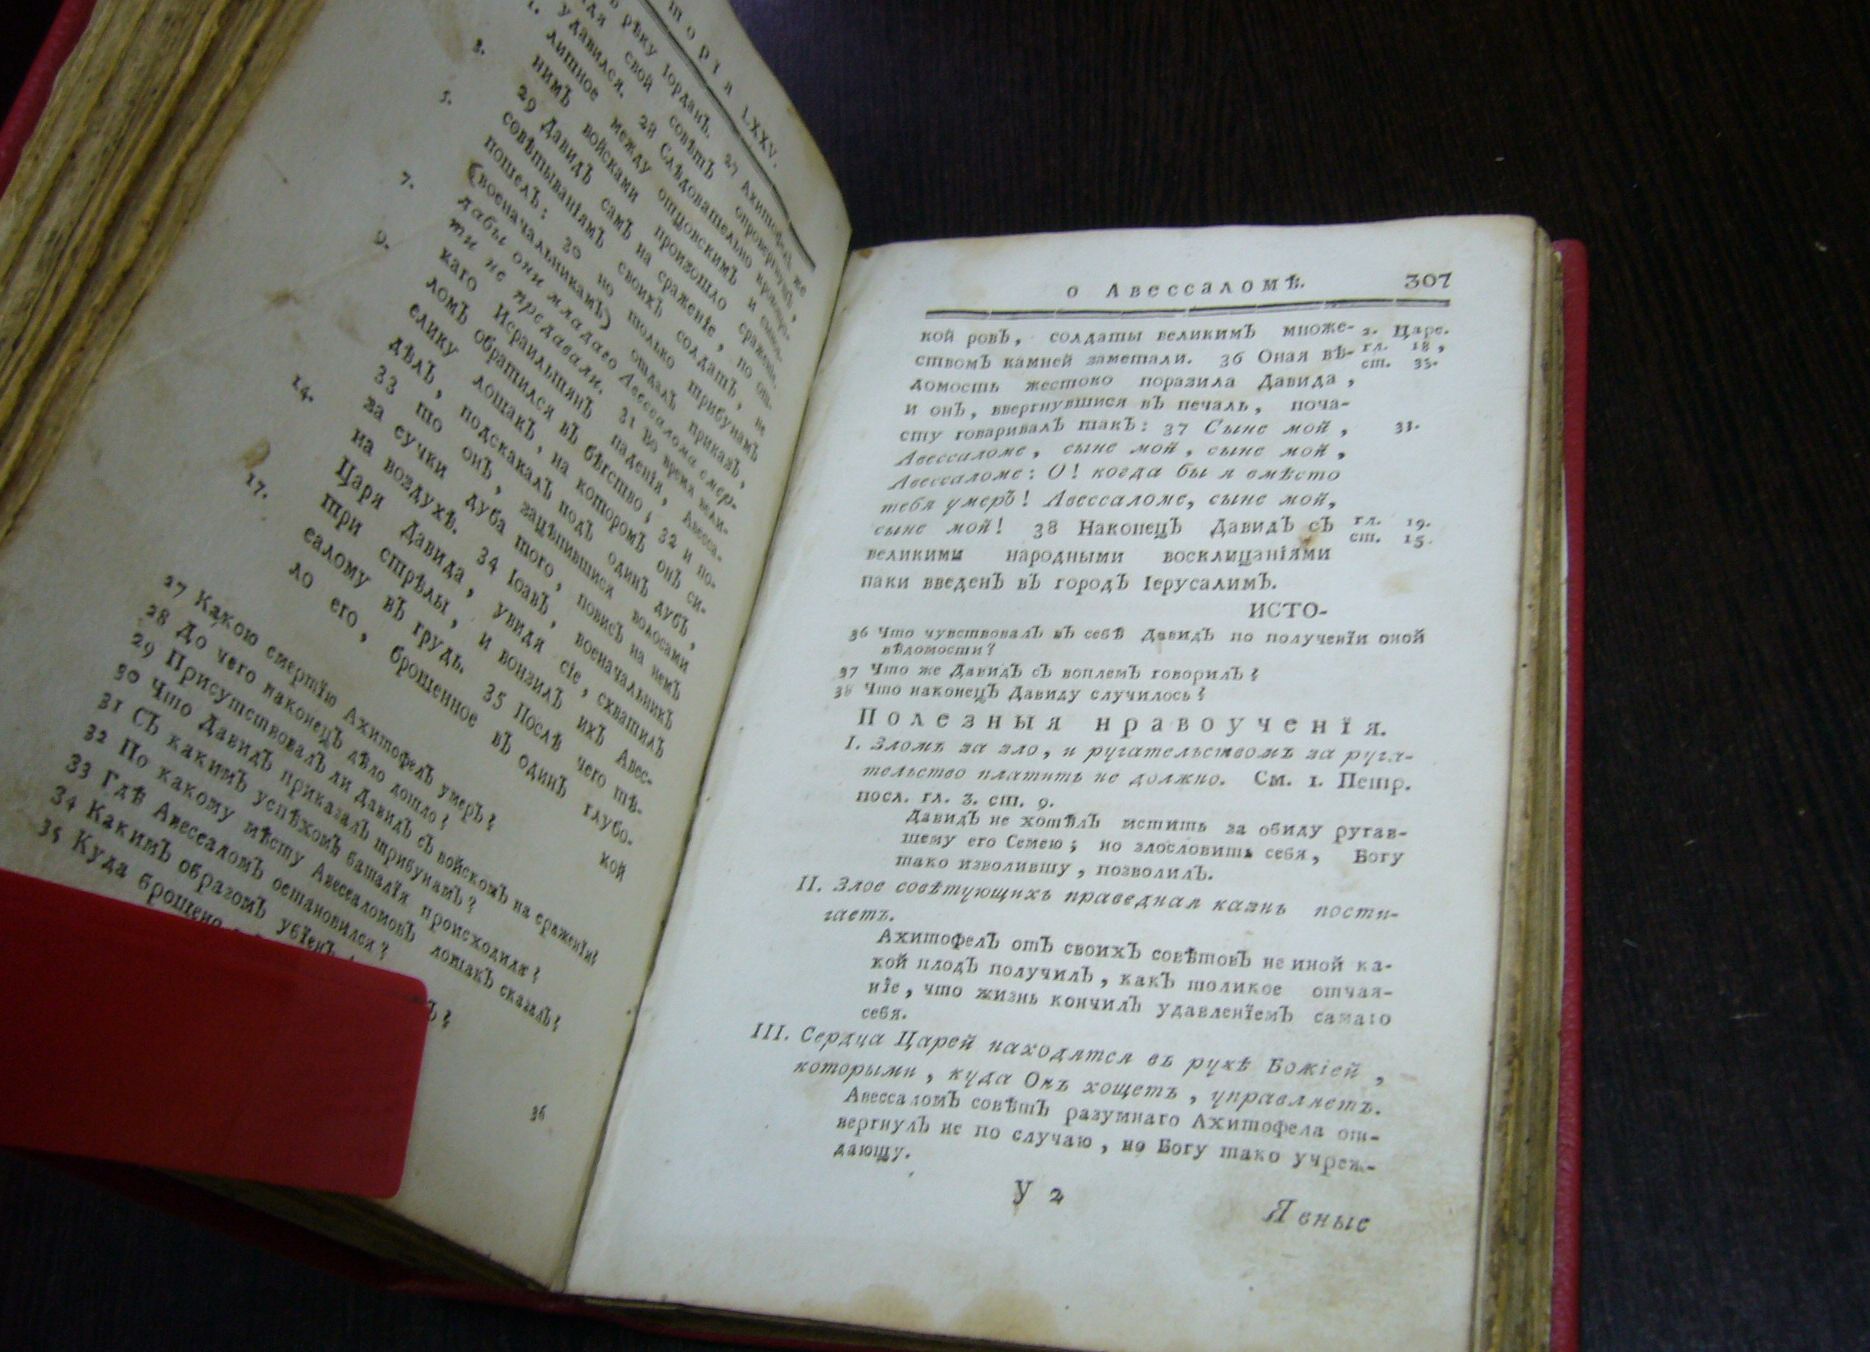 торія LXXV.
рѣку Іорданъ. 27 Ахитофелъ же
свой совѣтъ опровергнутъ,
удавился. 28 Слѣдовательно кровопро-
литное между отцовскимъ и сынов-
нимъ войсками произошло сраженіе.
29 Давидъ самъ на сраженіе, по от-
совѣтываніямъ своихъ солдатъ, не
пошелъ: 30 но только трибунамъ
(военачальникамъ) отдалъ приказъ,
дабы они младаго Авессалома смер-
ти не предавали. 31 Во время вели-
каго Израильтянъ паденія, Авесса-
ломъ обратился въ бѣгство; 32 и по-
елику лошакъ, на которомъ онъ си-
дѣлъ, подскакалъ подъ одинъ дубъ,
33 то онъ, зацѣпившися волосами
за сучки дуба того, повисъ на немъ
на воздухѣ. 34 Іоавъ, военачальникъ
Царя Давида, увидя сіе, схватилъ
три стрѣлы, и вонзилъ ихъ Авес-
салому въ грудь. 35 Послѣ чего тѣ-
ло его, брошенное въ одинъ глубо-
кой
3.
5.
7.
9.
14.
17.
27 Какою смертію Ахитофелъ умеръ?
28 До чего наконецъ дѣло дошло?
29 Присутствовалъ ли Давидъ съ войскомъ на сраженіи?
30 Что Давидъ приказалъ трибунамъ?
31 Съ какимъ успѣхомъ баталія происходила?
32 По какому мѣсту Авессаломовъ лошакъ скакалъ?
33 Гдѣ Авессаломъ остановился?
34 Какимъ образомъ убіенъ
35 Куда брошено
36
о Авессаломѣ. 307
кой ровъ, солдаты великимъ множе-
ствомъ камней заметали. 36 Оная вѣ-
домость жестоко поразила Давида,
и онъ, ввергнувшися въ печаль, поча-
сту говаривалъ такъ: 37 Сыне мой,
Авессаломе, сыне мой, сыне мой,
Авессаломе: О! когда бы я вмѣсто
тебя умеръ! Авессаломе, сыне мой,
сыне мой! 38 Наконецъ Давидъ съ
великими народными восклицаніями
паки введенъ въ городъ Іерусалимъ.
ИСТО-
2. Царс.
гл. 18,
ст. 33.
33.
гл. 19.
ст. 15.
36 Что чувствовалъ въ себѣ Давидъ по полученіи оной
вѣдомости?
37 Что же Давидъ съ воплемъ говорилъ?
38 Что наконецъ Давиду случилось?
Полезныя нравоученія.
I. Зломъ за зло, и ругательствомъ за руга-
тельство платить не должно. См. 1. Петр.
посл. гл. 3. ст. 9.
Давидъ не хотѣлъ мстить за обиду ругав-
шему его Семею; но злословить себя, Богу
тако изволившу, позволилъ.
II. Злое совѣтующихъ праведная казнь пости-
гаетъ.
Ахитофелъ отъ своихъ совѣтовъ не иной ка-
кой плодъ получилъ, какъ толикое отчая-
ніе, что жизнь кончилъ удавленіемъ самаго
себя.
III. Сердца Царей находятся въ рукѣ Божіей,
которыми, куда Онъ хощетъ, управляетъ.
Авессаломъ совѣтъ разумнаго Ахитофела от-
вергнулъ не по случаю, но Богу тако учреж-
дающу.
У 2
Явные